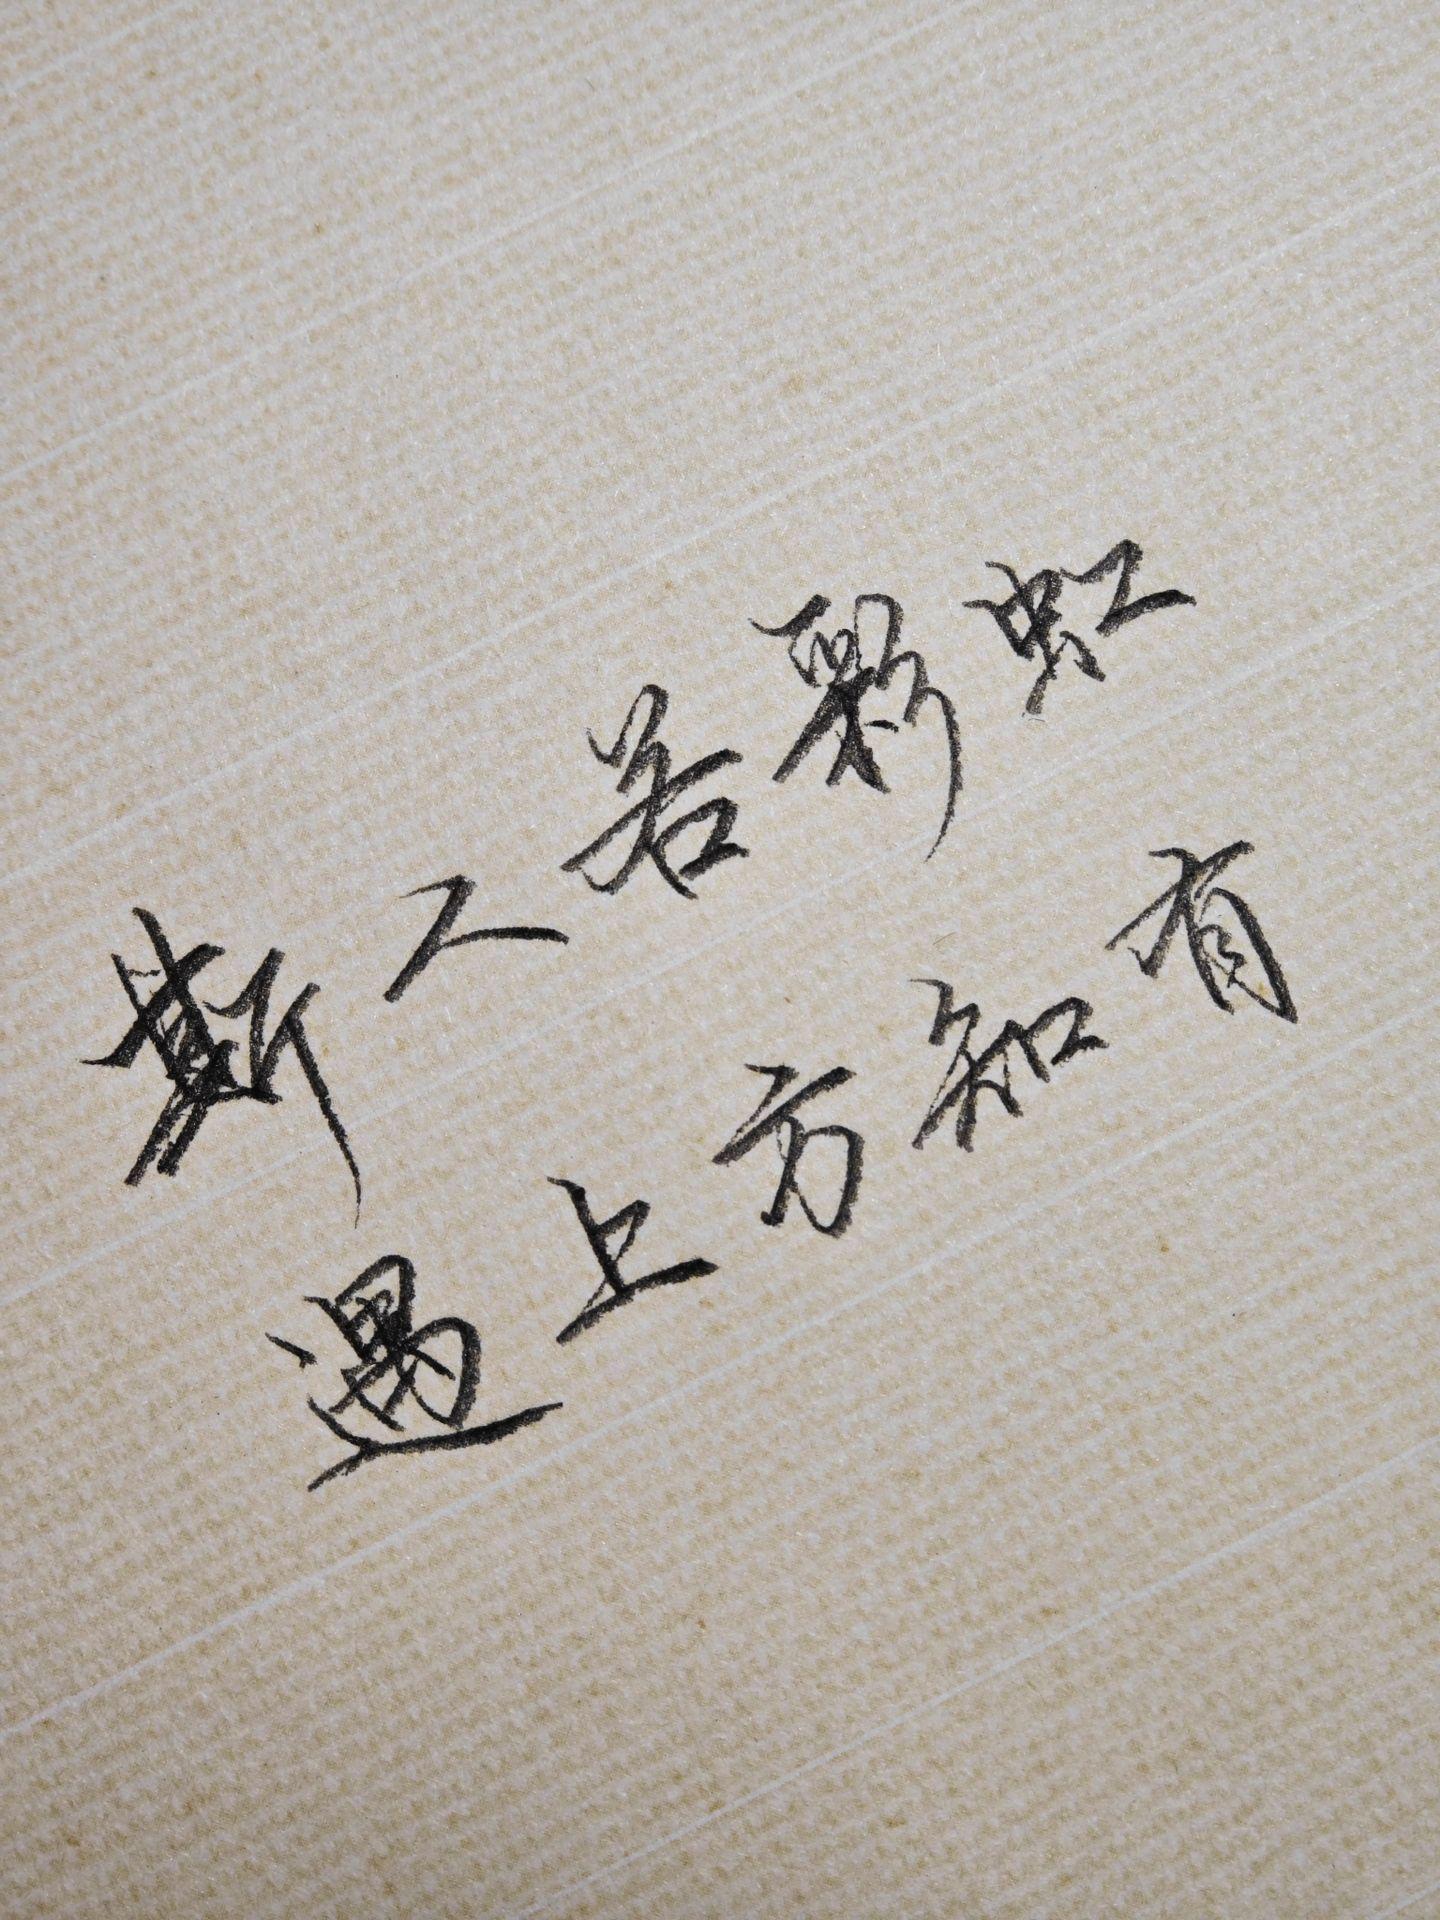 斯人若彩虹
遇上方知有